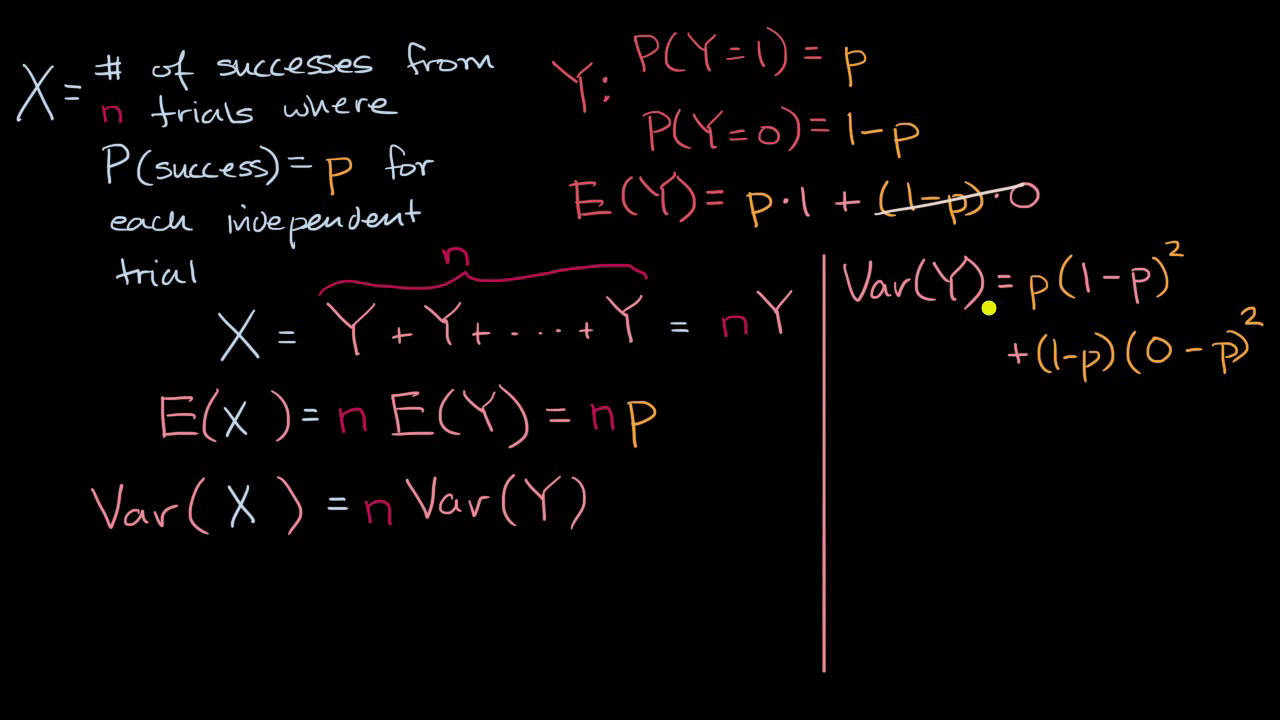 X = # of successes from
n trials where
P(success) = p for
each independent
trial
Y: P(Y=1) = p
P(Y=0) = 1-p
E(Y) = p·1 + (1-p)·0
n
X = Y + Y + ···· + Y = nY
E(X) = n E(Y) = np
Var(X) = n Var(Y)
Var(Y) = p(1-p)²
+ (1-p)(0-p)²